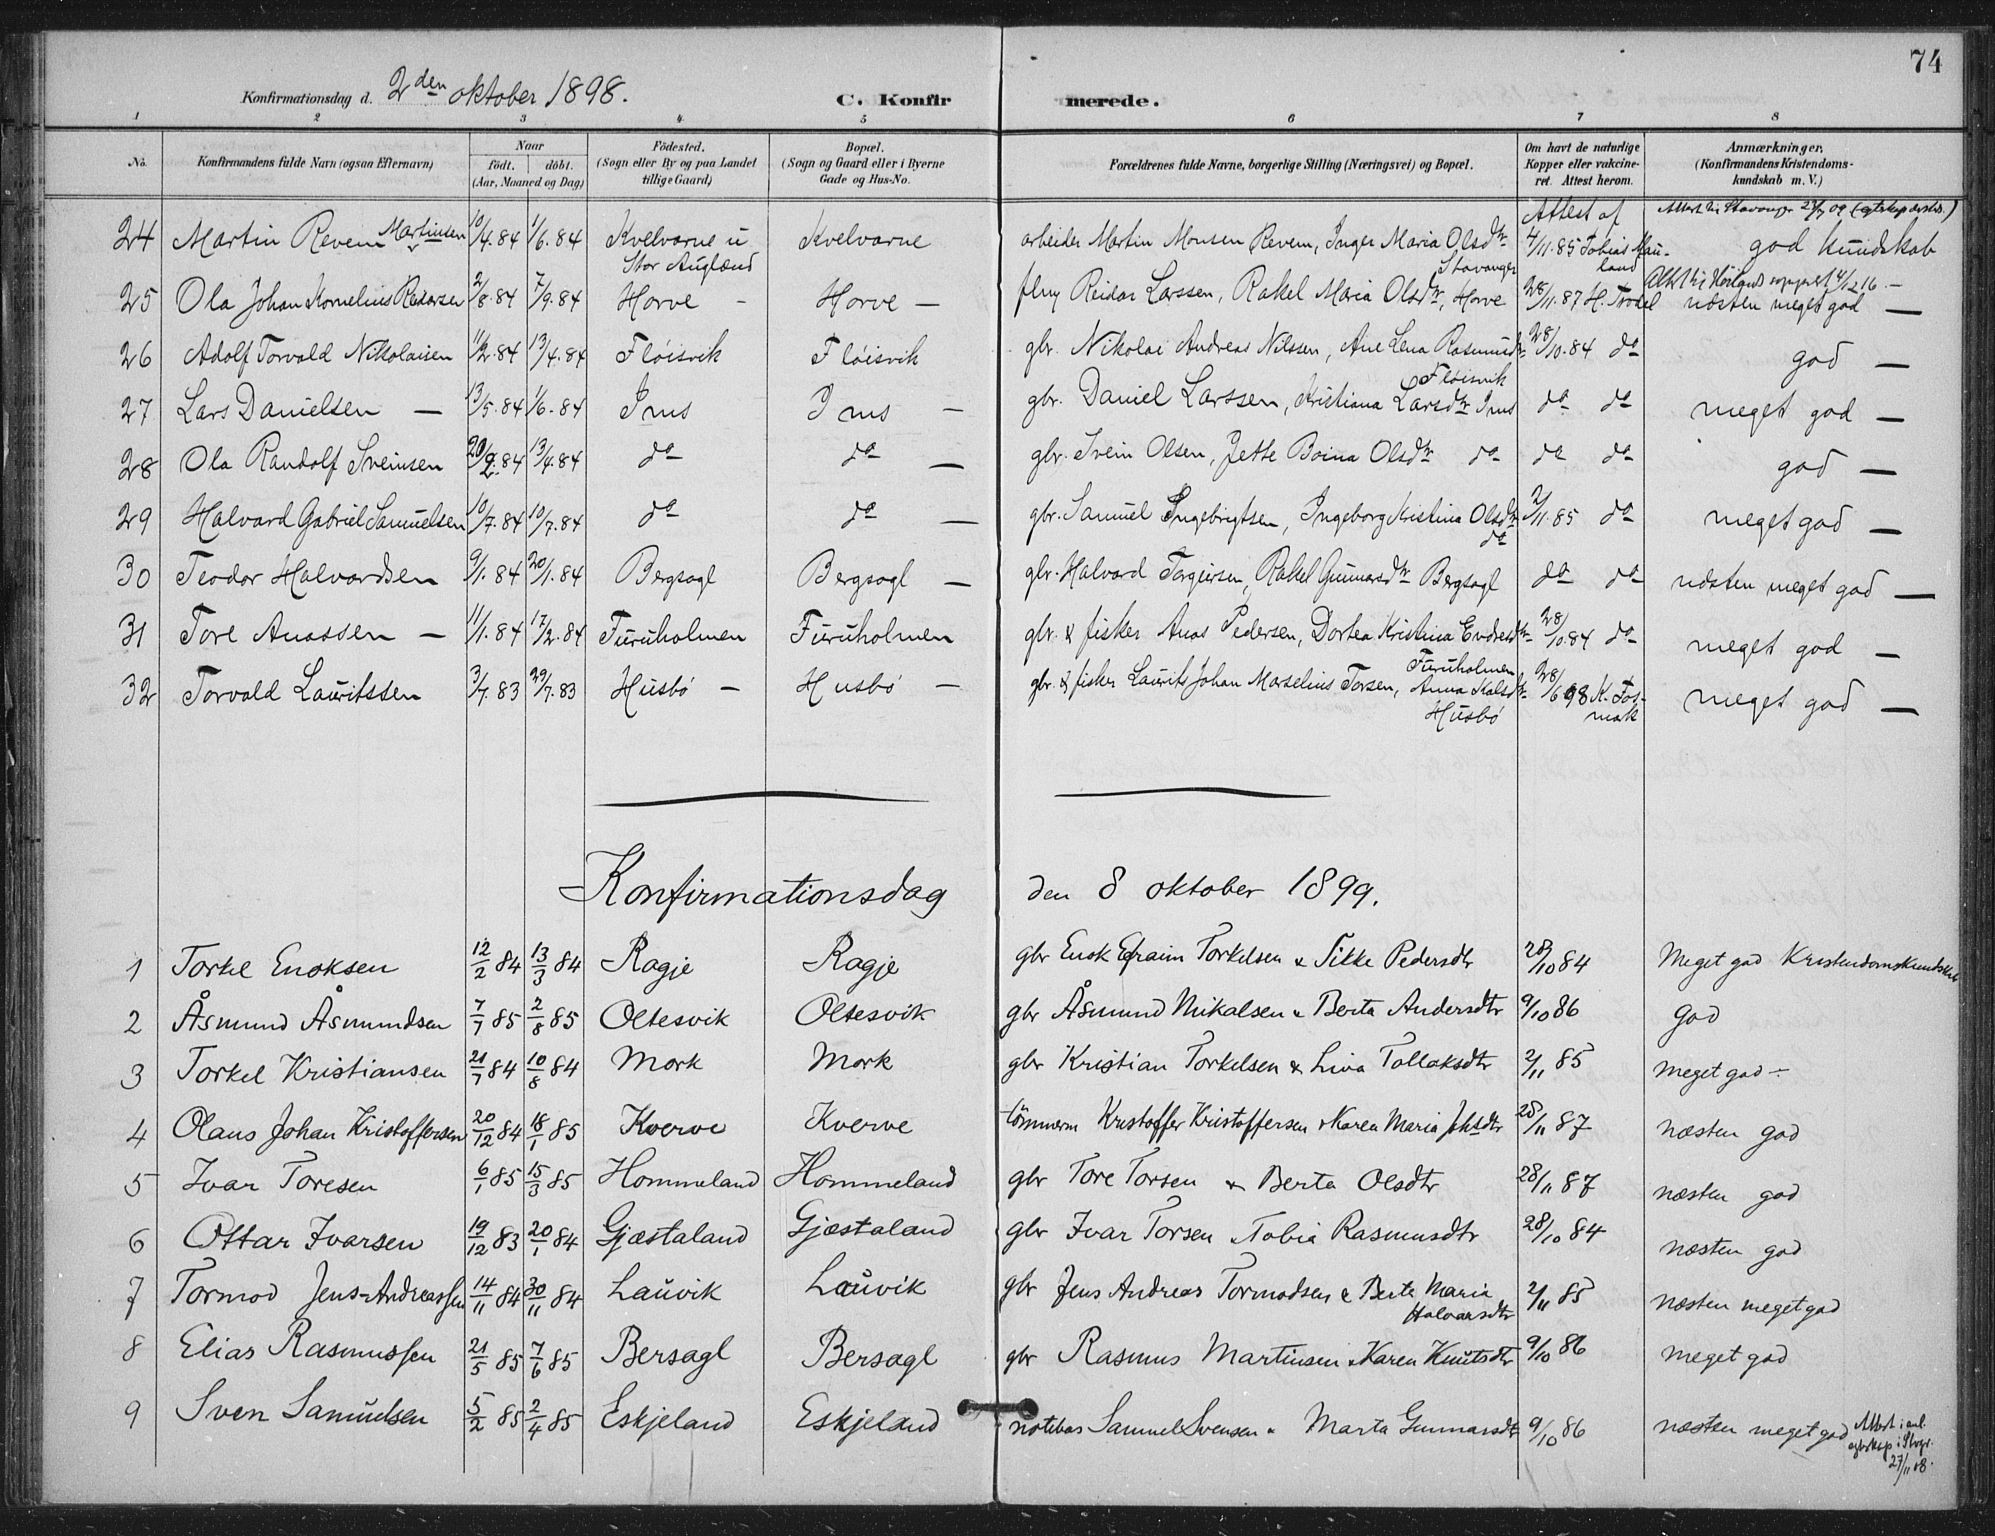 74
Konfirmationsdag d. 2den oktober 1898.
C. Konfirmerede.
1 2 3 4 5 6 7 8
No. Konfirmandens fulde Navn (ogsaa Efternavn) Naar født. døbt. (Aar, Maaned og Dag) Födested. (Sogn eller By og paa Landet tillige Gaard) Bopæl. (Sogn og Gaard eller i Byerne Gade og Hus-No. Forældrenes fulde Navne, borgerlige Stilling (Næringsvei) og Bopæl. Om havt de naturlige Kopper eller vakcineret. Attest herom. Anmærkninger. (Konfirmandens Kristendomskundskab m. V.)
24 Martin Revem Martinsen 10/4.84 1/6.84 Kvelvarne Kvelvarne arbeider Martin Monsen Revem, Inger Maria Olsdtr Stavanger Attest af 4/11.85 Tobias Mauland god kundskab
25 Ola Johan Kornelius Reidarsen 2/8.84 7/9.84 Horve - Horve - Reidar Larssen, Rakel Maria Olsdtr, Horve 28/11.87 næsten meget god —
26 Adolf Torvald Nikolaisen 11/2.84 13/4.84 Fløisvik Fløisvik gbr. Nikolai Andreas Nilssen, Ane Lena Rasmusdtr Fløisvik 28/10.84 do god —
27 Lars Danielsen — 13/5.84 1/6.84 Ims Ims — gbr. Daniel Larssen, Kristiana Larsdtr Ims do do meget god —
28 Ola Randolf Sveinsen 20/2.84 13/4.84 do do — gbr. Svein Olsen, Jette Boina Olsdtr do do do god —
29 Halvard Gabriel Samuelsen 10/7.84 10/7.84 do do — gbr. Samuel Ingebrigtsen, Ingeborg Kristina Olsdtr do 2/11.85 do meget god —
30 Teodor Halvardsen 9/1.84 20/1.84 Bergsagl Bergsagl — gbr. Halvard Torgeirsen, Rakel Gunnarsdtr Bergsagl do do næsten meget god —
31 Tore Anassen — 11/1.84 17/2.84 Furuholmen Furuholmen gbr. & fisker Anas Pedersen, Dortea Kristina Endresdtr Furuholmen 28/10.84 do meget god —
32 Torvald Lauritssen 3/7.83 29/7.83 Husbø — Husbø — gbr. & fisker Laurits Johan Marselius Torsen, Anna Kalsdtr Husbø 28/6 98 K. Fosmark meget god —
Konfirmationsdag den 8 oktober 1899.
1 Torkel Enoksen 12/2 84 13/3 84 Ragje Ragje gbr Enok Efraim Torkelsen & Sikke Pedersdtr 28/10 84 Meget god Kristendomskundskab
2 Åsmund Åsmundsen 7/7 85 2/8 85 Oltesvik Oltesvik gbr Åsmund Mikalsen & Berta Andersdtr 9/10 86 God
3 Torkel Kristiansen 21/7 84 10/8 84 Mork Mork gbr Kristian Torkelsen & Liva Tollaksdtr 2/11 85 meget god -
4 Olaus Johan Kristoffersen 20/12 84 18/1 85 Kverve Kverve tömmerm Kristoffer Kristoffersen & Karen Maria Johsdtr 28/11 87 næsten god
5 Ivar Toresen 6/1 85 15/3 85 Hommeland Hommeland gbr Tore Torsen & Berta Olsdtr 28/11 87 næsten god
6 Ottar Ivarsen 19/12 83 20/1 84 Gjæstaland Gjæstaland gbr Ivar Torsen & Tobia Rasmusdtr 28/10 84 næsten god
7 Tormod Jens-Andreassen 14/11 84 30/11 84 Lauvik Lauvik gbr Jens Andreas Tormodsen & Berte Maria Halvarsdtr 2/11 85 næsten meget god
8 Elias Rasmussen 21/5 85 7/6 85 Bersagl Bersagl gbr Rasmus Martinsen & Karen Knutsdtr 9/10 86 meget god
9 Sven Samuelsen 5/2 85 2/4 85 Eskjeland Eskjeland notebas Samuel Svensen & Marta Gunnarsdtr 9/10 86 næsten meget god Attest i anl. egteskap i Stvgr. 27/11 08.